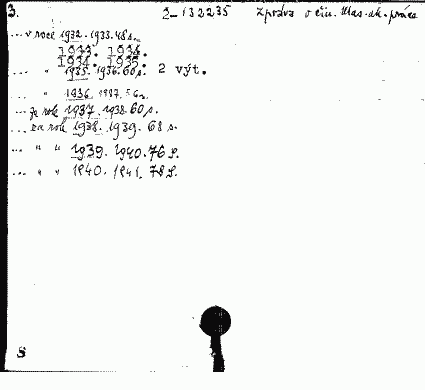 3. 2-132235 Zpráva o čin. Mas. ak. práce
... v roce 1932. 1933. 48 s.
1933. 1934.
1934. 1935.
... " 1935. 1936. 60 s. 2 výt.
... " 1936. 1937. 56 s.
... za rok 1937. 1938. 60 s.
... za rok 1938. 1939. 68 s.
... " " 1939. 1940. 76 s.
... " " 1940. 1941. 78 s.
S